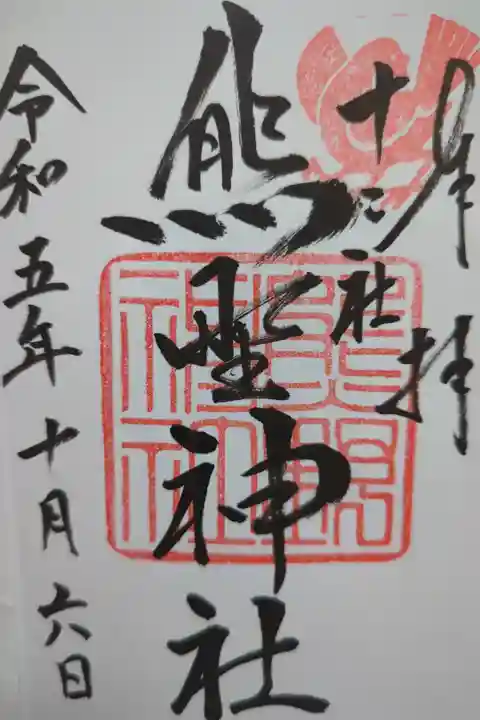 奉拝
十二社
熊野神社
令和五年十月六日